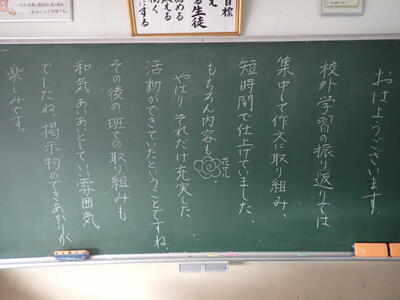 目標
る生徒
にする
おはようございます。
校外学習の振り返りでは
集中して作文に取り組み、
短時間で仕上げていました。
もちろん内容も
やはり、それだけ充実した
活動ができていたということですね。
その後の班での取り組みも
和気あいあいとしていい雰囲気
でしたね。掲示物のできあがりが
楽しみです。